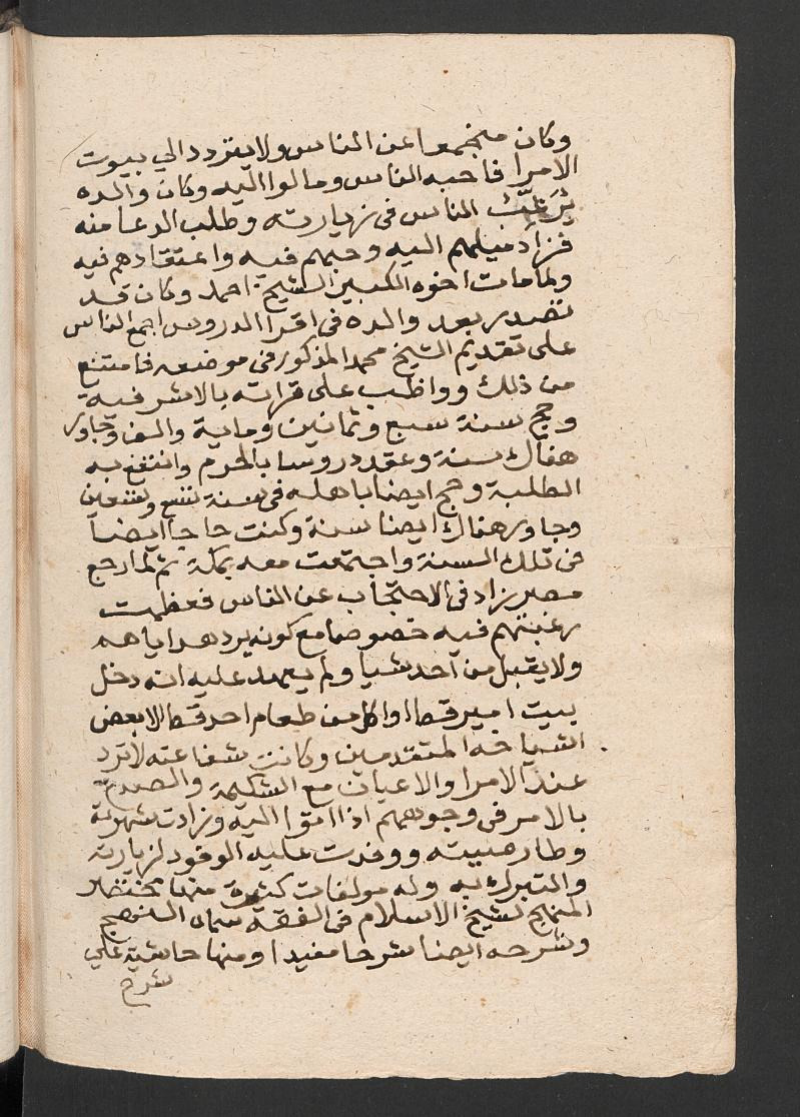 وكان منجمعا عن الناس ولا يتردد الي بيوت
الامرا فاحبه الناس ومالوا اليه وكان والده
يُرَغِّبُ الناس في زيارته وطلب الدعا منه
فزاد ميلهم اليه وحبهم فيه واعتقادهم فيه
ولما مات اخوه الكبير الشيخ احمد وكان قد
تصدر بعد والده في اقرا الدروس اجمع الناس
على تقديم الشيخ محمد المذكور في موضعه فامتنع
من ذلك وواظب على قراته بالاشرفية
وحج سنة سبع وثمانين وماية والف وجاور
هناك سنة وعقد دروسا بالحرم وانتفع به
الطلبة وحج ايضا باهله في سنة تسع وتسعين
وجاور هناك ايضا سنة وكنت حاجا ايضا
في تلك السنة واجتمعت معه بمكة ثم لما رجع
مصر زاد في الاحتجاب عن الناس فعظمت
رغبتهم فيه خصوصا مع كونه يرد هداياهم
ولا يقبل من احد شيا ولم يعهد عليه انه دخل
بيت امير قط او اكل من طعام احد قط الا بعض
اشياخه المتقدمين وكانت شفاعته لا ترد
عند الامرا والاعيان مع الشكيمة والصدع
بالامر في وجوههم اذا اتوا اليه وزادت شهرته
وطار صيته ووفدت عليه الوفود لزيارته
والتبرك به وله مولفات كثيرة منها مختصر
المنهج لشيخ الاسلام في الفقه سماه النهج
وشرحه ايضا شرحا مفيدا ومنها حاشية علي
شرح